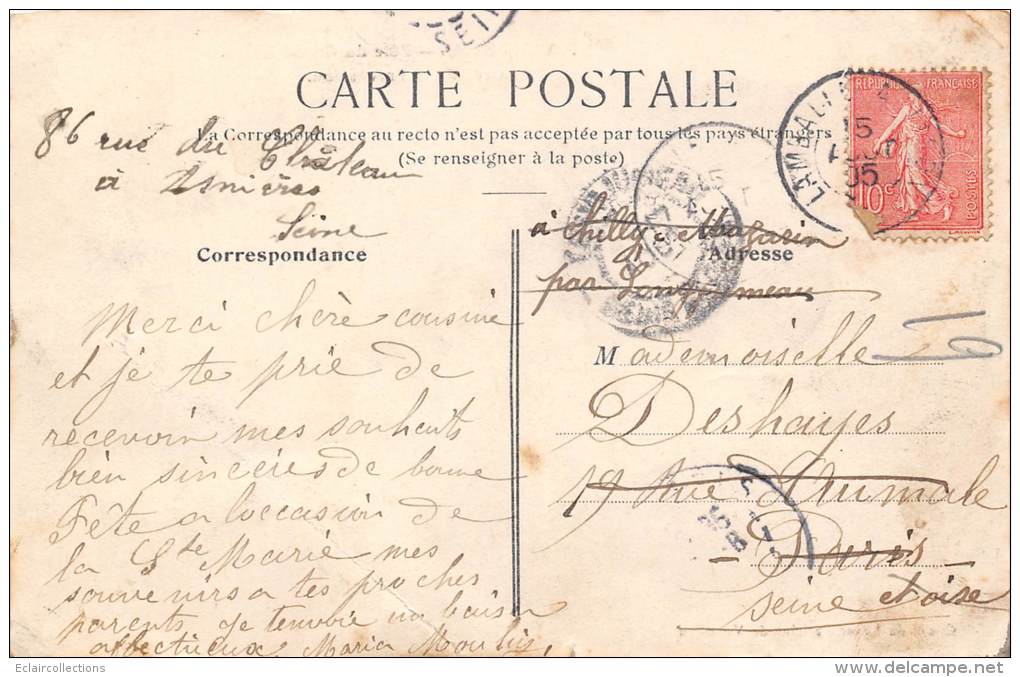 CARTE POSTALE
La Correspondance au recto n'est pas acceptée par tous les pays étrangers
(Se renseigner à la poste)
86 rue du Château
à Asnières
Seine
Correspondance
Merci chère cousine
et je te prie de
recevoir mes souhaits
bien sincères de bonne
Fête a loccasion de
la Ste Marie mes
souvenirs a tes proches
parents je tenvoie un baiser
affectueux Maria
à Chilly-Mazarin
par Longjumeau
Adresse
Mademoiselle
Deshayes
19 Rue Aumale
Paris
Seine et Oise
REPUBLIQUE FRANÇAISE
10c
POSTES
LAMBALLE
15
05
Eclaircollections
delcampe.net